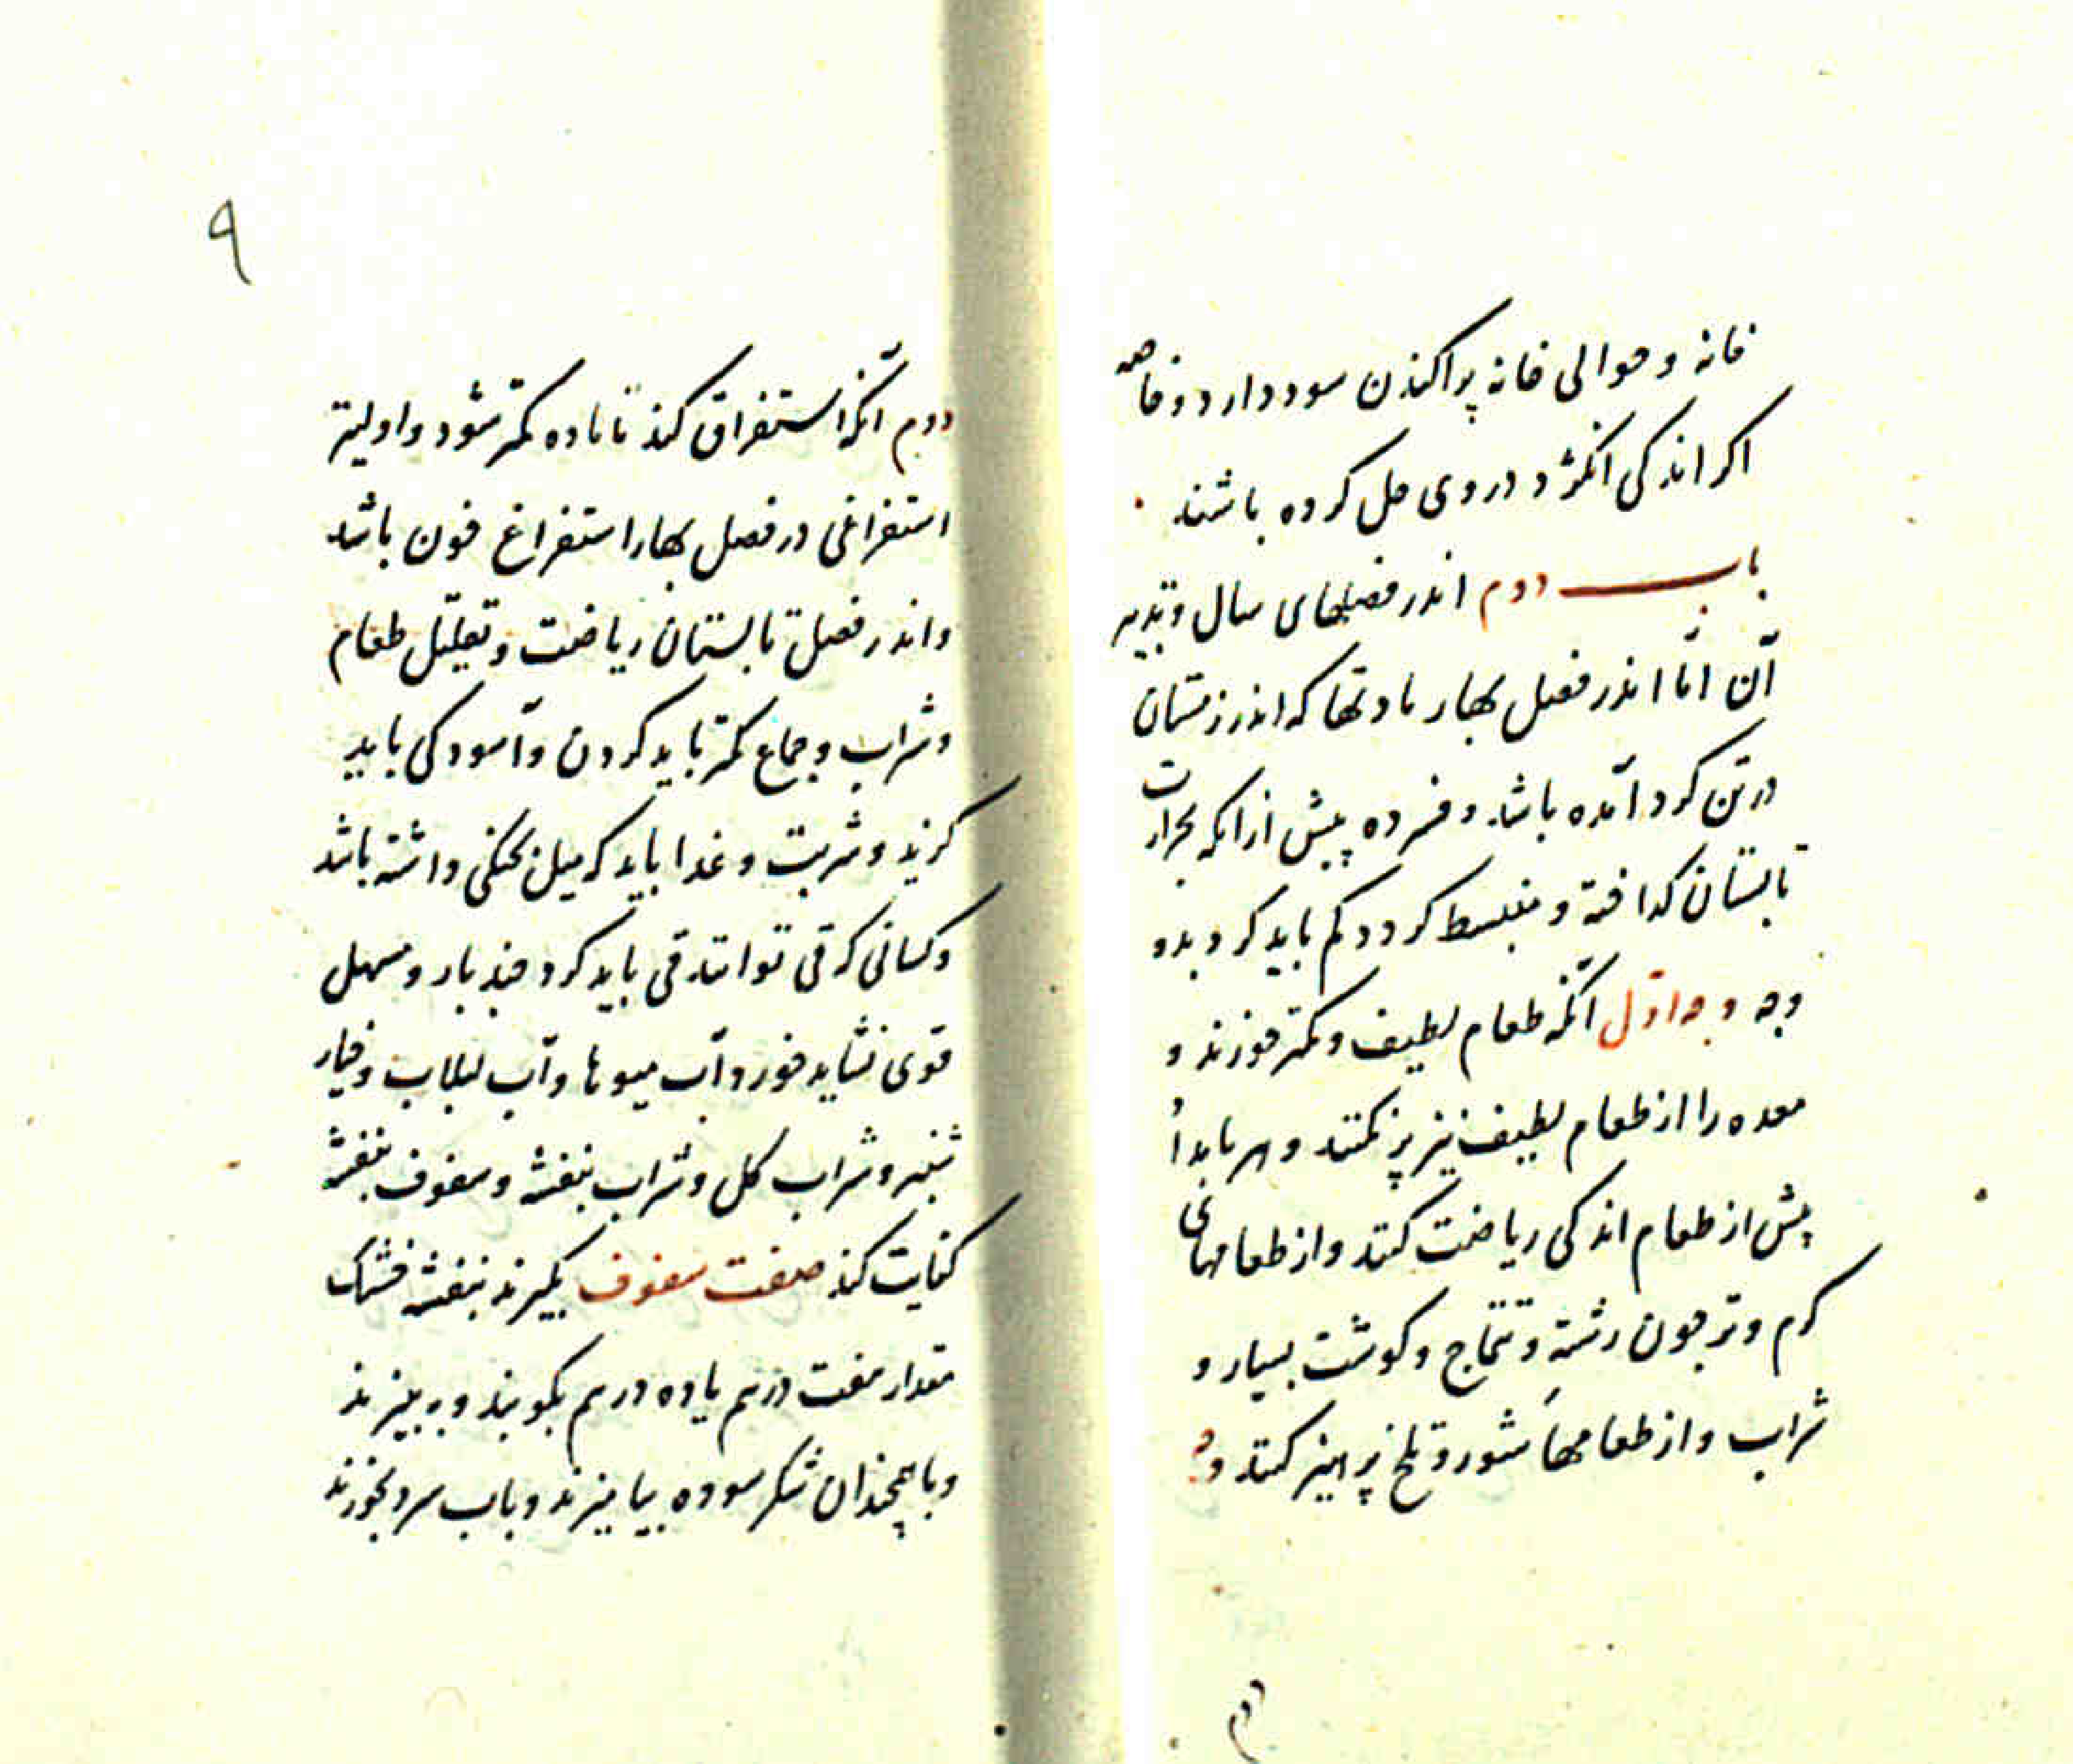 خانه و حوالی خانه پراکندن سود دارد و خاصه
اکر اندکی انکژد در وی حل کرده باشند
باب دوم اندر فصلهای سال و تدبیر
آن امّا اندر فصل بهار مادتها که اندر زمستان
در تن کرد آمده باشد و فسرده پیش از انکه بحرارت
تابستان کداخته و منبسط کردد کم باید کرد بدو
وجه وجه اوّل آنکه طعام لطیف و کمتر خورند و
معده را از طعام لطیف نیز پر نکنند و هر بامداد
پیش از طعام اندکی ریاضت کنند و از طعامهای
کرم و تر چون رشته و تتماج و کوشت بسیار و
شراب و از طعامهاء شور و تلخ پرهیز کنند و
دوم
۹
دوم آنکه استفراق کند تا ماده کمتر شود و اولیتر
استفراغی در فصل بهار استفراغ خون باشد
و اندر فصل تابستان ریاضت و تقلیل طعام
و شراب و جماع کمتر باید کردن و آسودکی باید
کزید و شربت و غدا باید که میل بخنکی داشته باشد
و کسانی که قی توانند قی باید کرد چند بار و مسهل
قوی نشاید خورد و آب میوها و آب لبلاب و خیار
شنبر و شراب کل و شراب بنفشه و سفوف بنفشه
کفایت کند صفت سفوف بکیرند بنفشه خشک
مقدار هفت درهم یا ده درهم بکوبند و ببیزند
و با همچندان شکر سوده بیامیزند و باب سرد بخورند